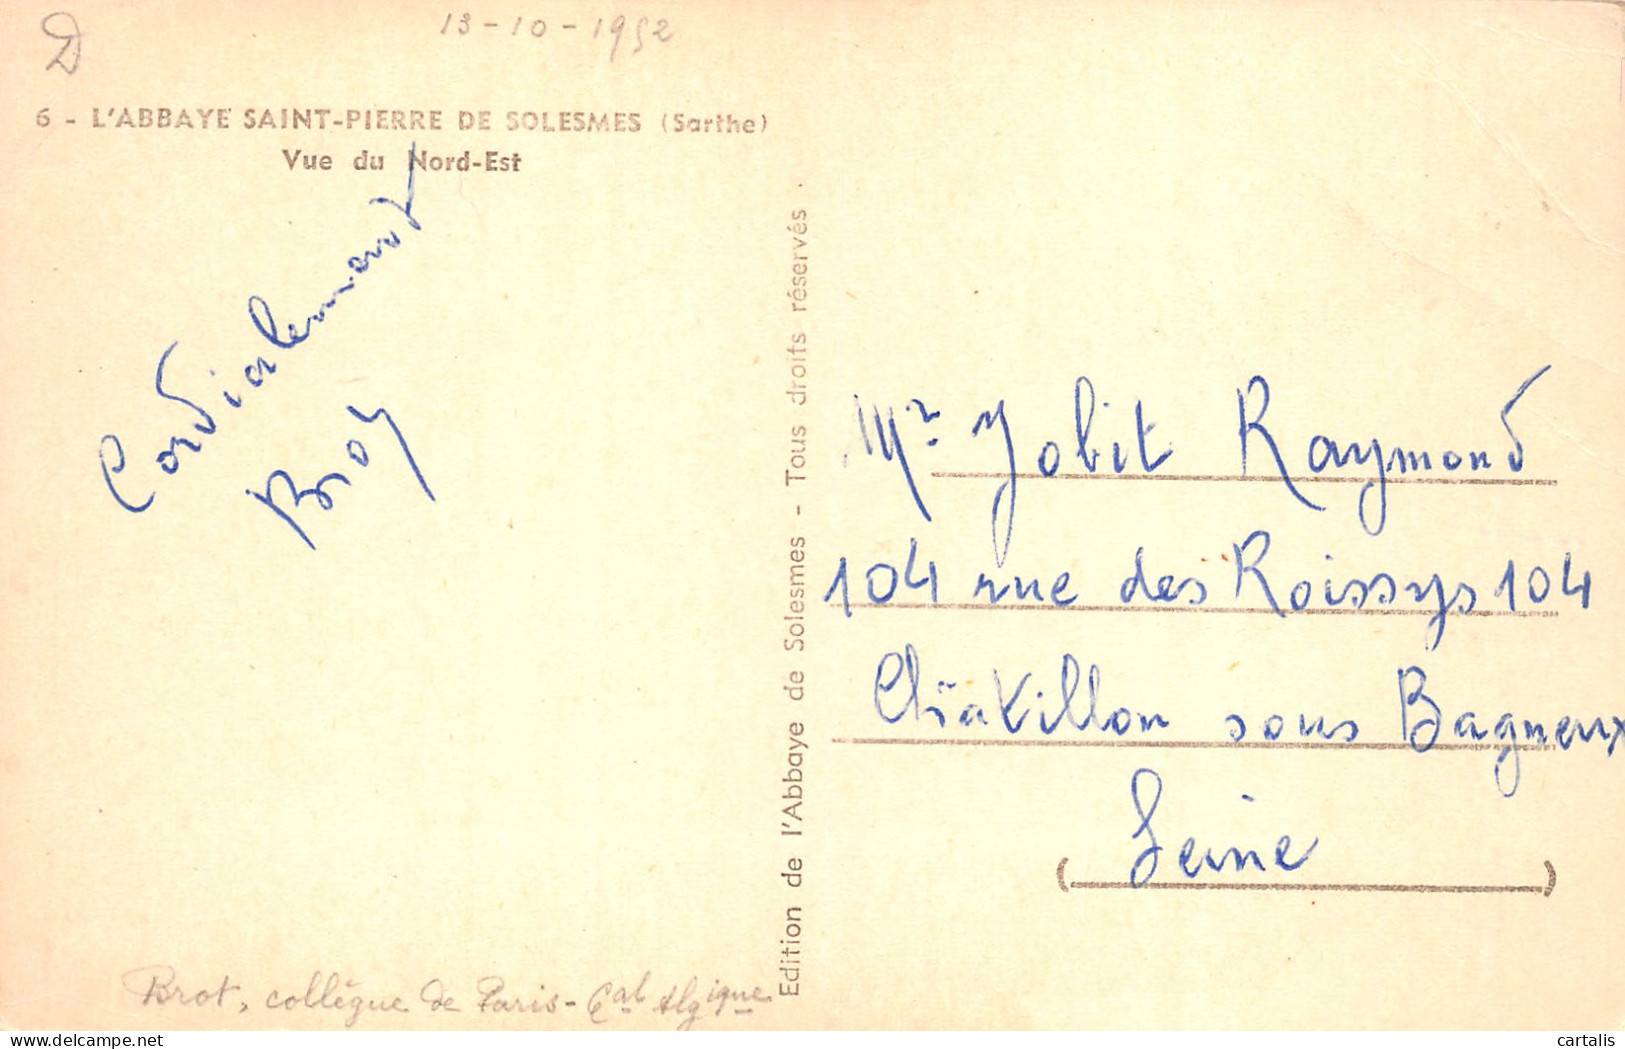 D
13-10-1952
6 - L'ABBAYE SAINT-PIERRE DE SOLESMES (Sarthe)
Vue du Nord-Est
Cordialement
Brot
Edition de l'Abbaye de Solesmes - Tous droits réservés.
Mr Jobit Raymond
104 rue des Roissys 104
Châtillon sous Bagneux
(Seine)
Brot, collègue de Paris-
cartalis